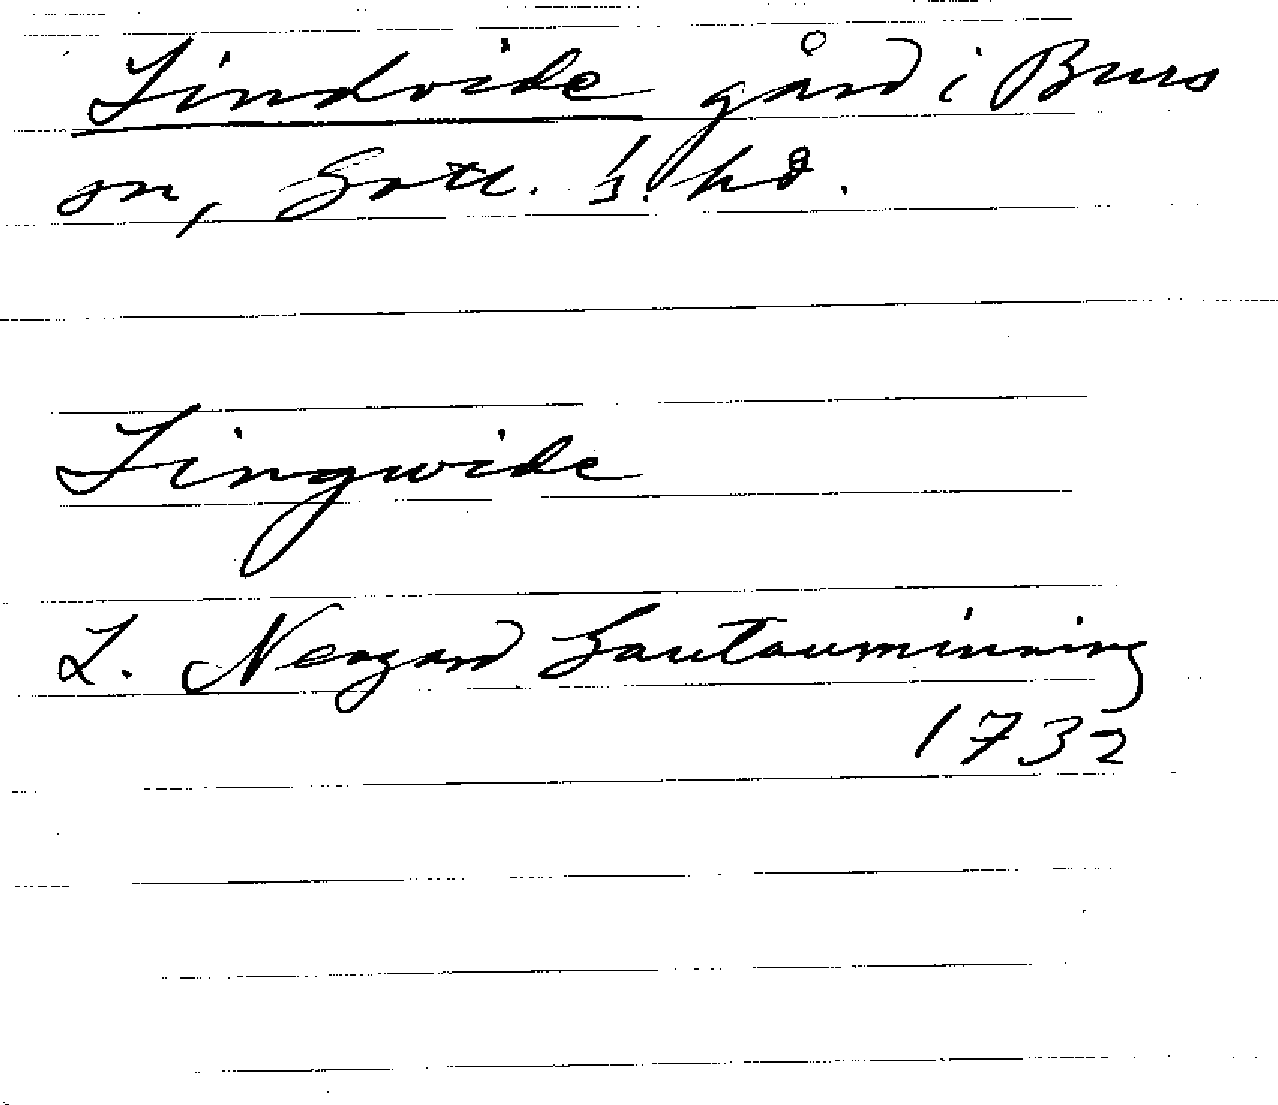 Lindvide gård i Burs
sn, Gotl. s. hd.
Lingwide
L. Neogard Gautauminning
1732